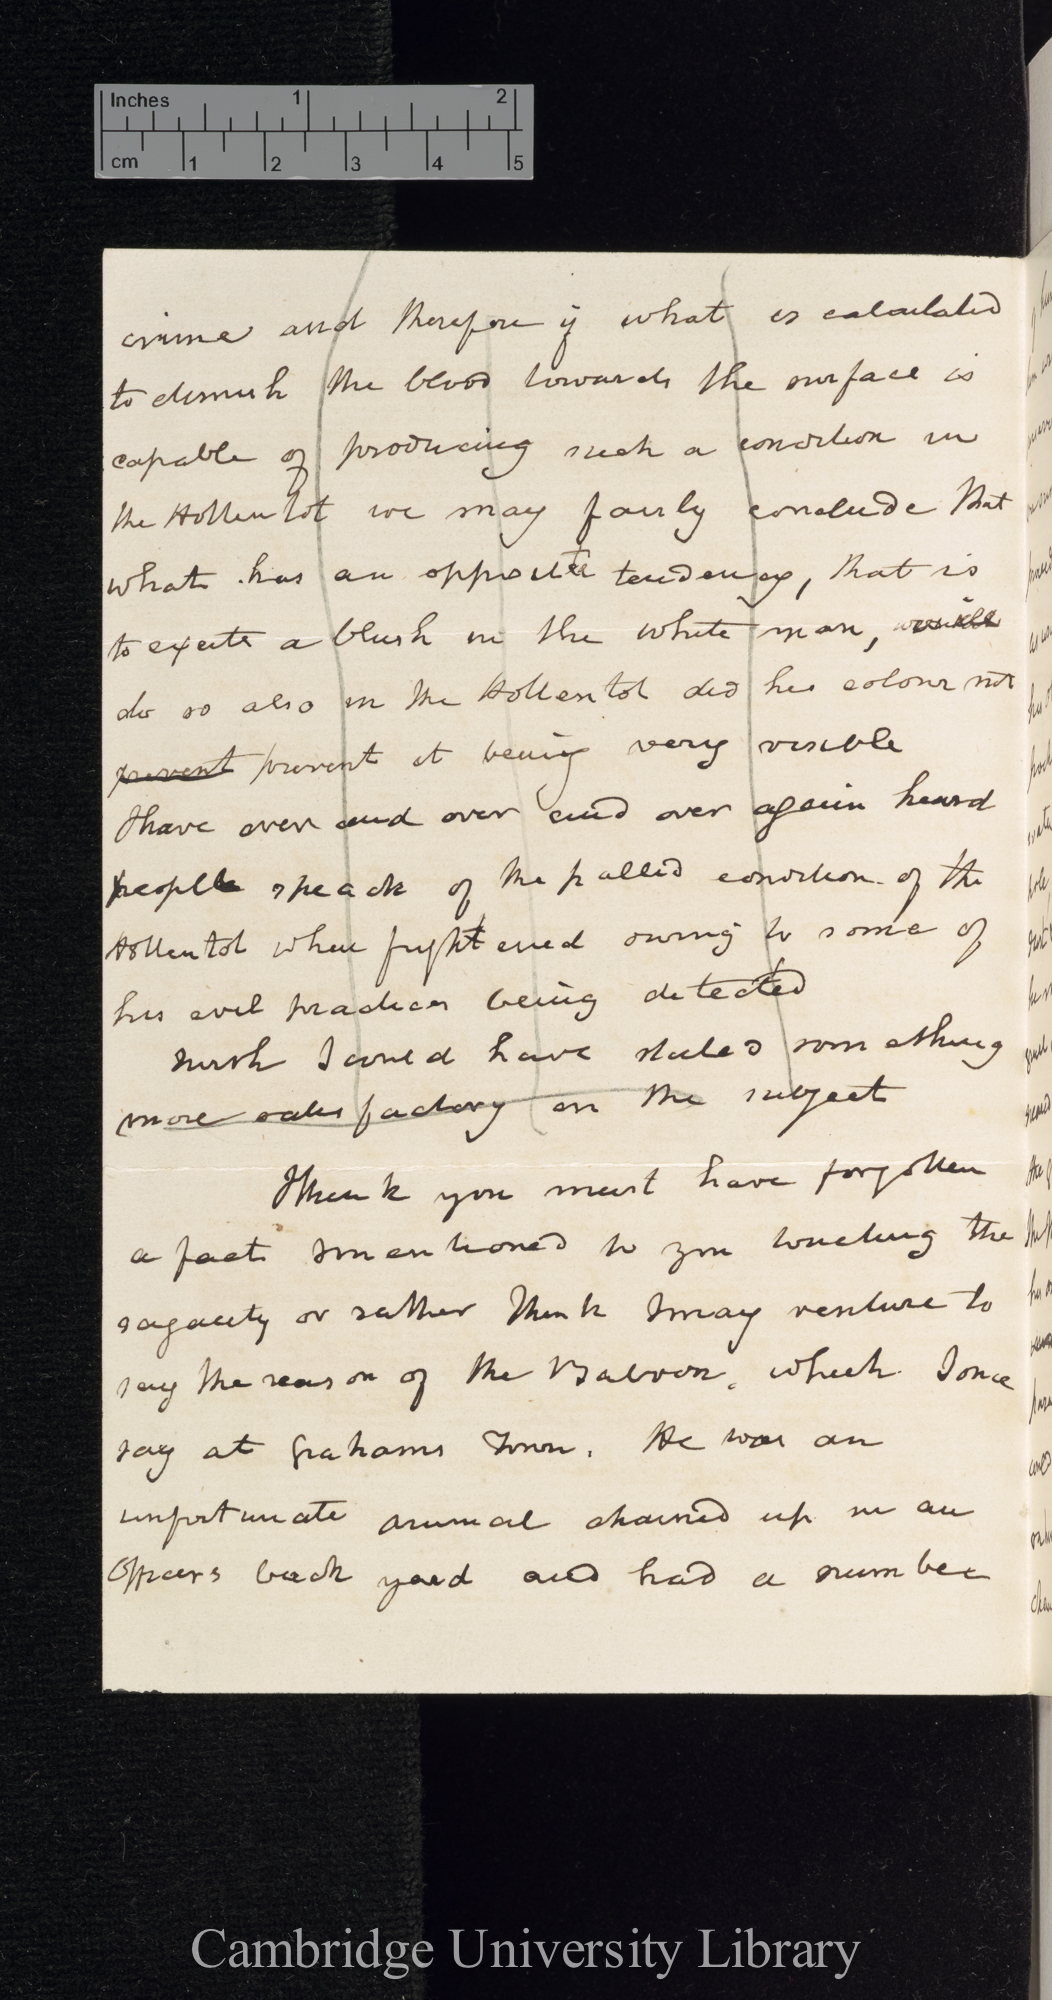 Inches 1 2
cm 1 2 3 4 5
crime and therefore if what is calculated
to dimish the blood towards the surface is
capable of producing such a condition in
the Hottentot we may fairly conclude that
what has an opposite tendency, that is
to excite a blush in the white man, would
do so also in the Hottentot did his colour not
prevent prevent it being very visible
I have over and over and over again heard
people speack of the pallid condition of the
Hottentot when frightened owing to some of
his evil practices being detected
I wish I could have stated something
more satisfactory on the subject
I think you must have forgotten
a fact I mentioned to you touching the
sagacity or rather I think I may venture to
say the reason of the Baboon, which I once
say at Grahams Town. He was an
unfortunate animal chained up in an
Officers back yard and had a number
Cambridge University Library